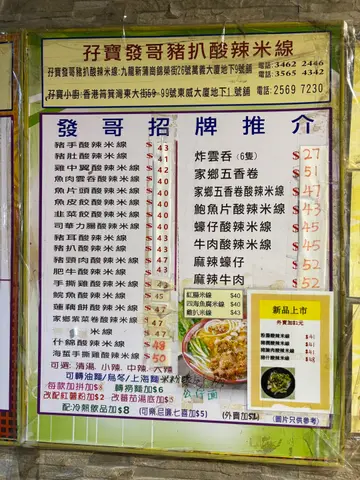 孖寶發哥豬扒酸辣米線
孖寶發哥豬扒酸辣米線:九龍新蒲崗錦榮街26號萬義大廈地下9號舖 電話:3462 2446
電話:3565 4342
孖寶小廚:香港筲箕灣東大街59-99號東威大廈地下1號舖 電話:2569 7230
發哥招牌推介
豬手酸辣米線 $43
豬肚酸辣米線 $41
雞中翼酸辣米線 $42
魚肉雲吞酸辣米線 $40
魚片頭酸辣米線 $40
魚皮餃酸辣米線 $40
韭菜餃酸辣米線 $40
司華力腸酸辣米線 $40
豬耳酸辣米線
豬扒酸辣米線
豬頸肉酸辣米線 $47
肥牛酸辣米線 $43
手撕雞酸辣米線
鯇魚酸辣米線 $45
蓮藕餅酸辣米線
家鄉紫菜卷酸辣米線
米線
什錦酸辣米線 $48
海蜇手撕雞酸辣米線 $50
炸雲吞(6隻) $27
家鄉五香卷 $51
家鄉五香卷酸辣米線 $47
鮑魚片酸辣米線 $43
蠔仔酸辣米線 $45
牛肉酸辣米線 $45
麻辣蠔仔 $52
麻辣牛肉 $52
紅腸米線 $40
四海魚腐米線 $40
雞扒米線 $43
新品上市
可選: 清湯, 小辣, 中辣, 大辣
可轉油麵/烏冬/上海麵
每款加拼加$3 轉撈麵加$6
改配紅薯粉加$2 改番茄湯底加$3
配冷熱飲品加$8 (可樂忌廉七喜加$5) (外賣加$1)
(圖片只供參考)